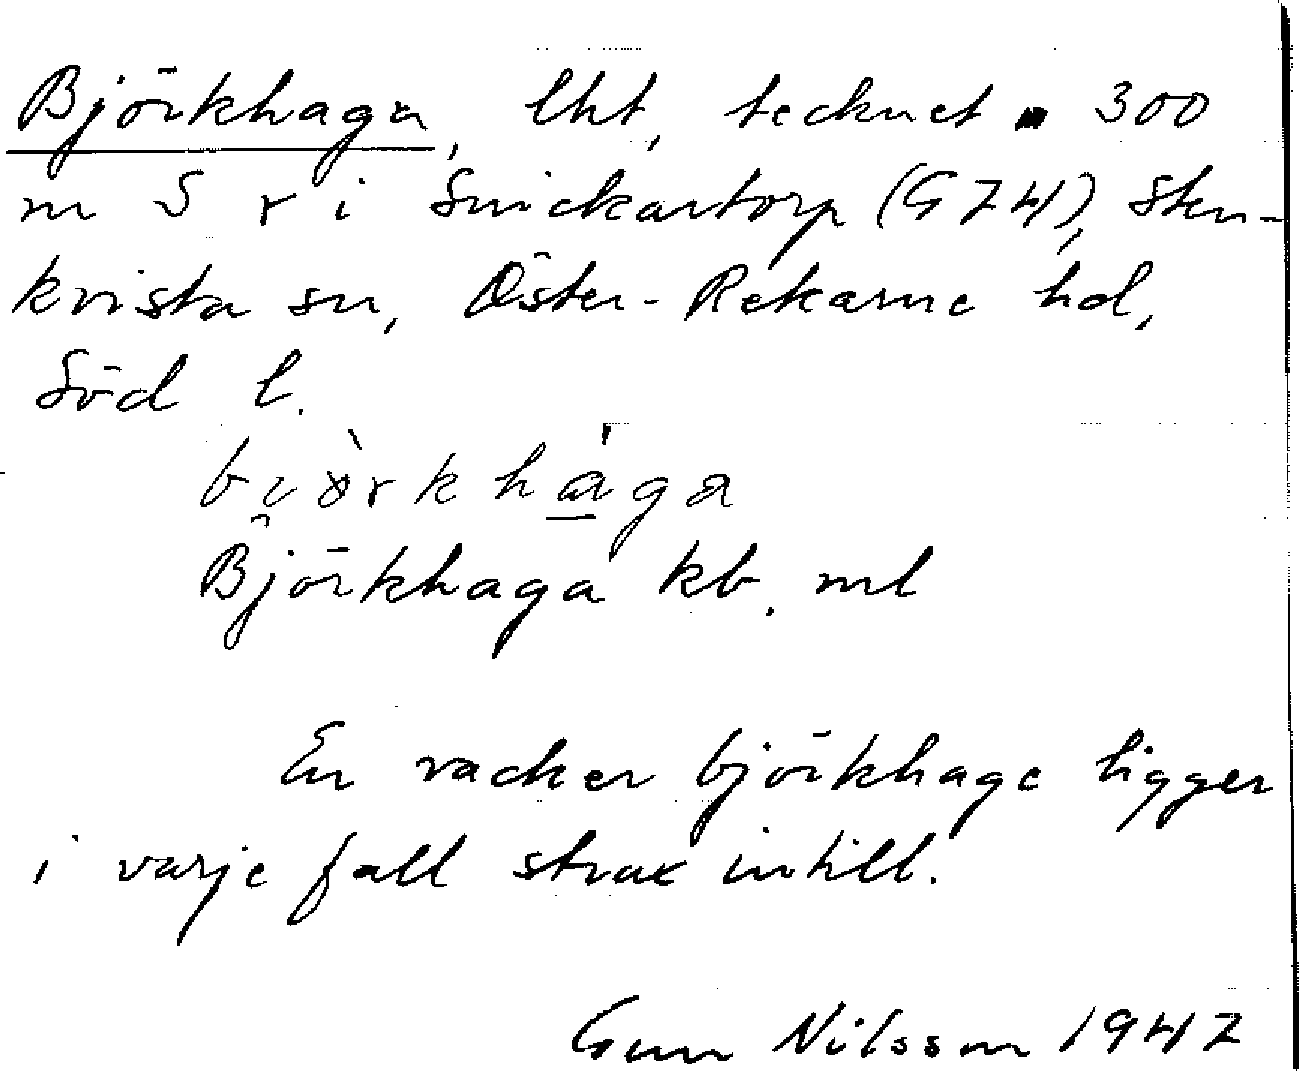 Björkhaga, lht, tecknet ▪ 300
m S r i Snickartorp (G74), Sten-
kvista sn, Öster-Rekarne hd,
Söd l.
bi̯ò̈rkhá̱ga
Björkhaga kb. ml
En vacker björkhage ligger
i varje fall strax intill.
Gun Nilsson 1947